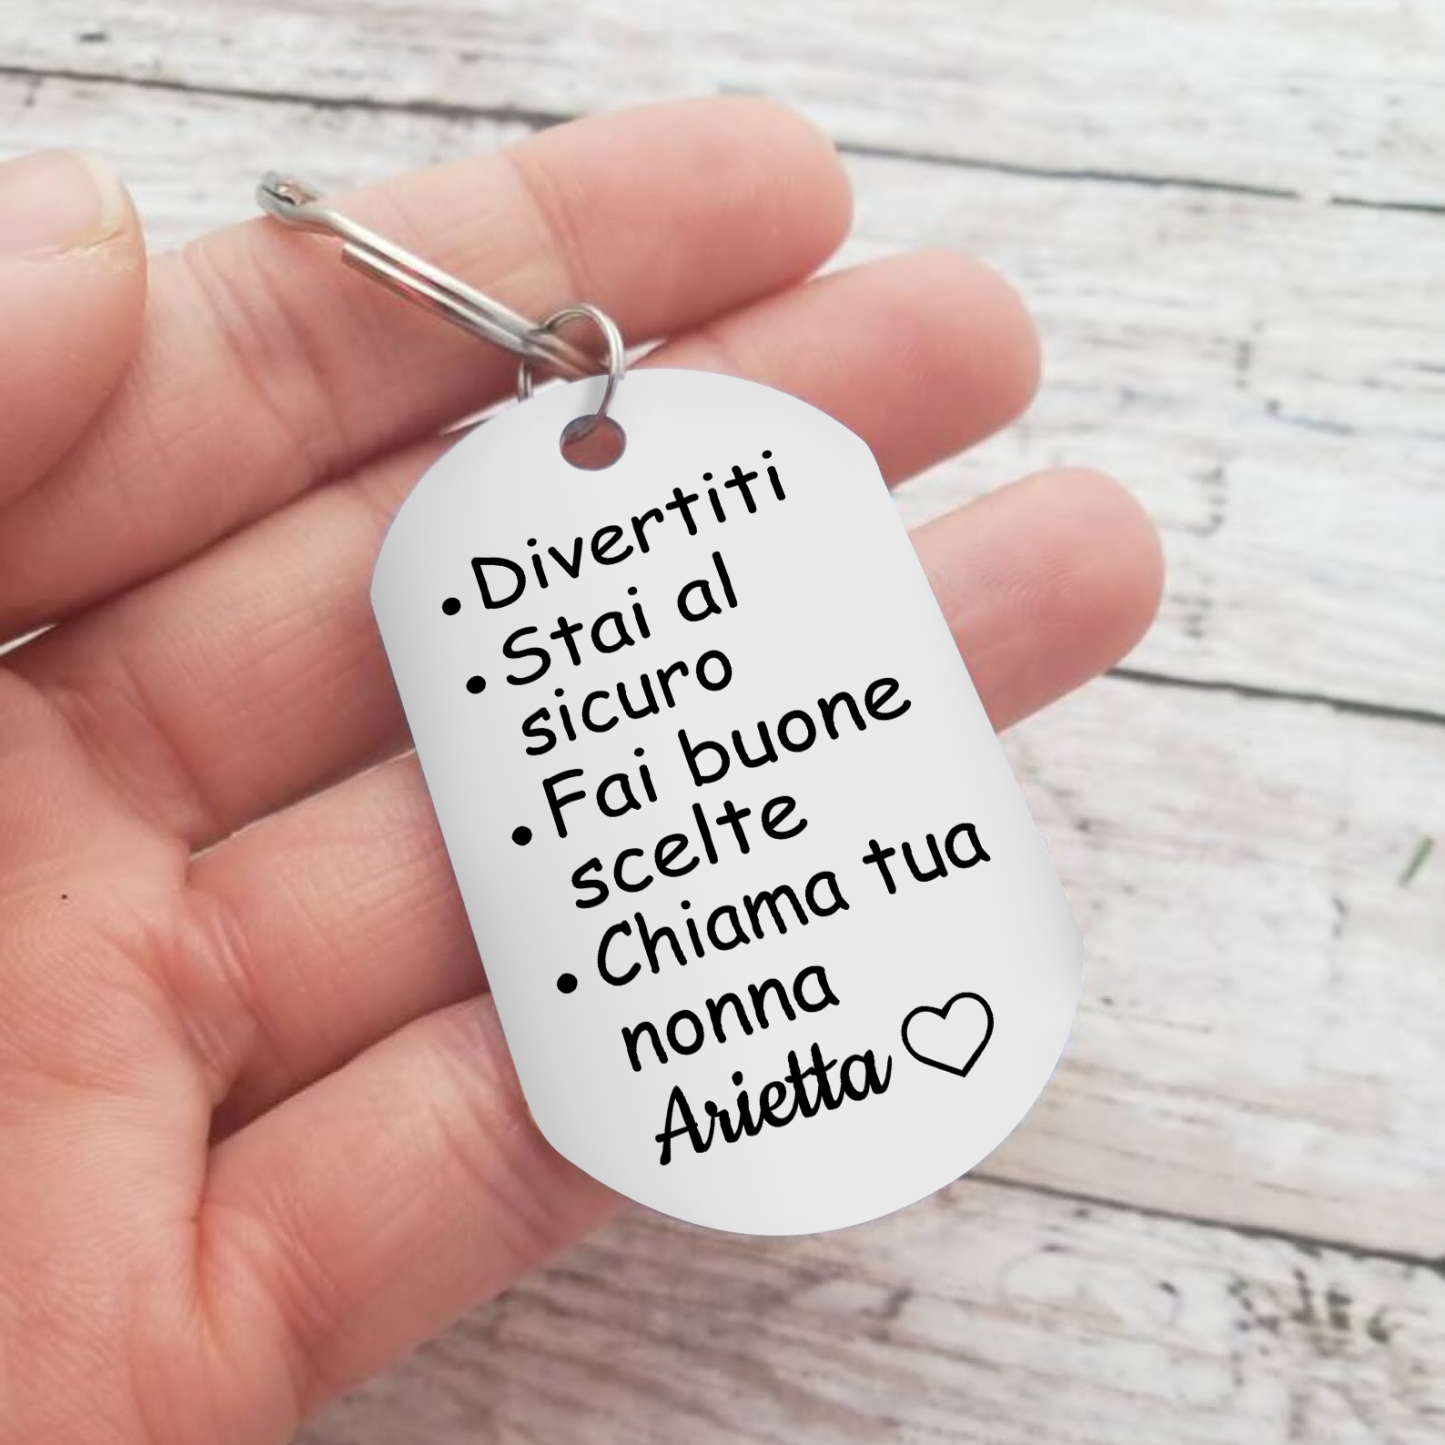 • Divertiti
• Stai al
sicuro
• Fai buone
scelte
• Chiama tua
nonna
Arietta ♡